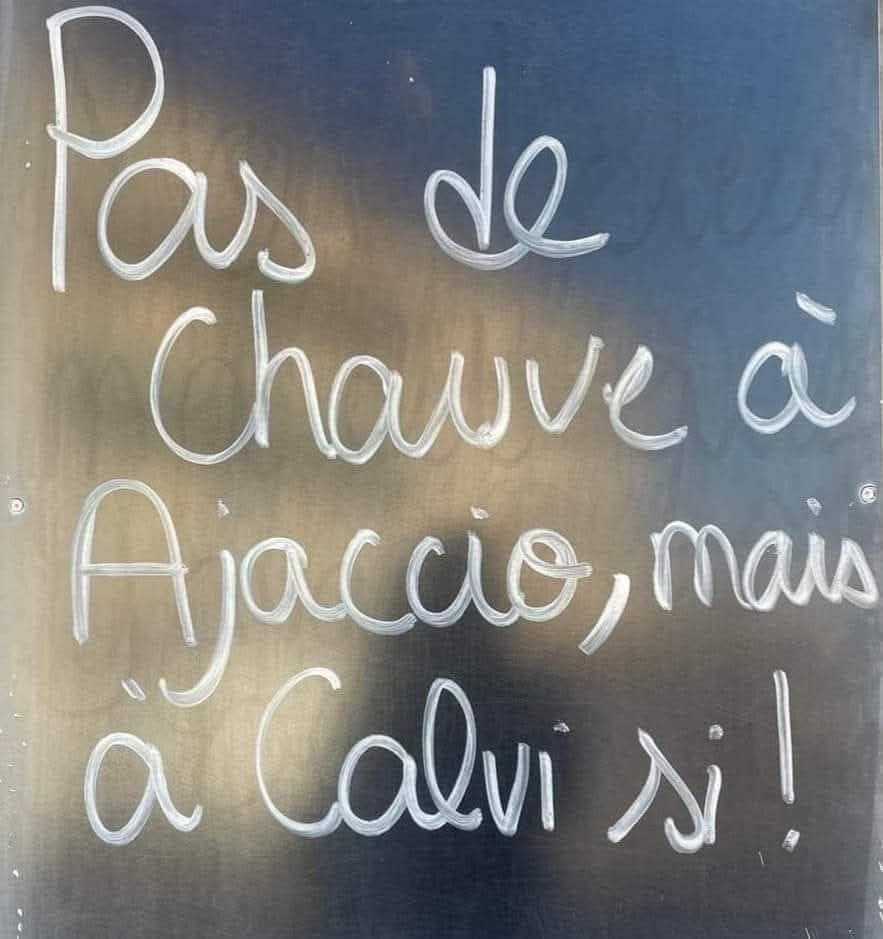 Pas de
Chauve à
Ajaccio, mais
à Calvi si !